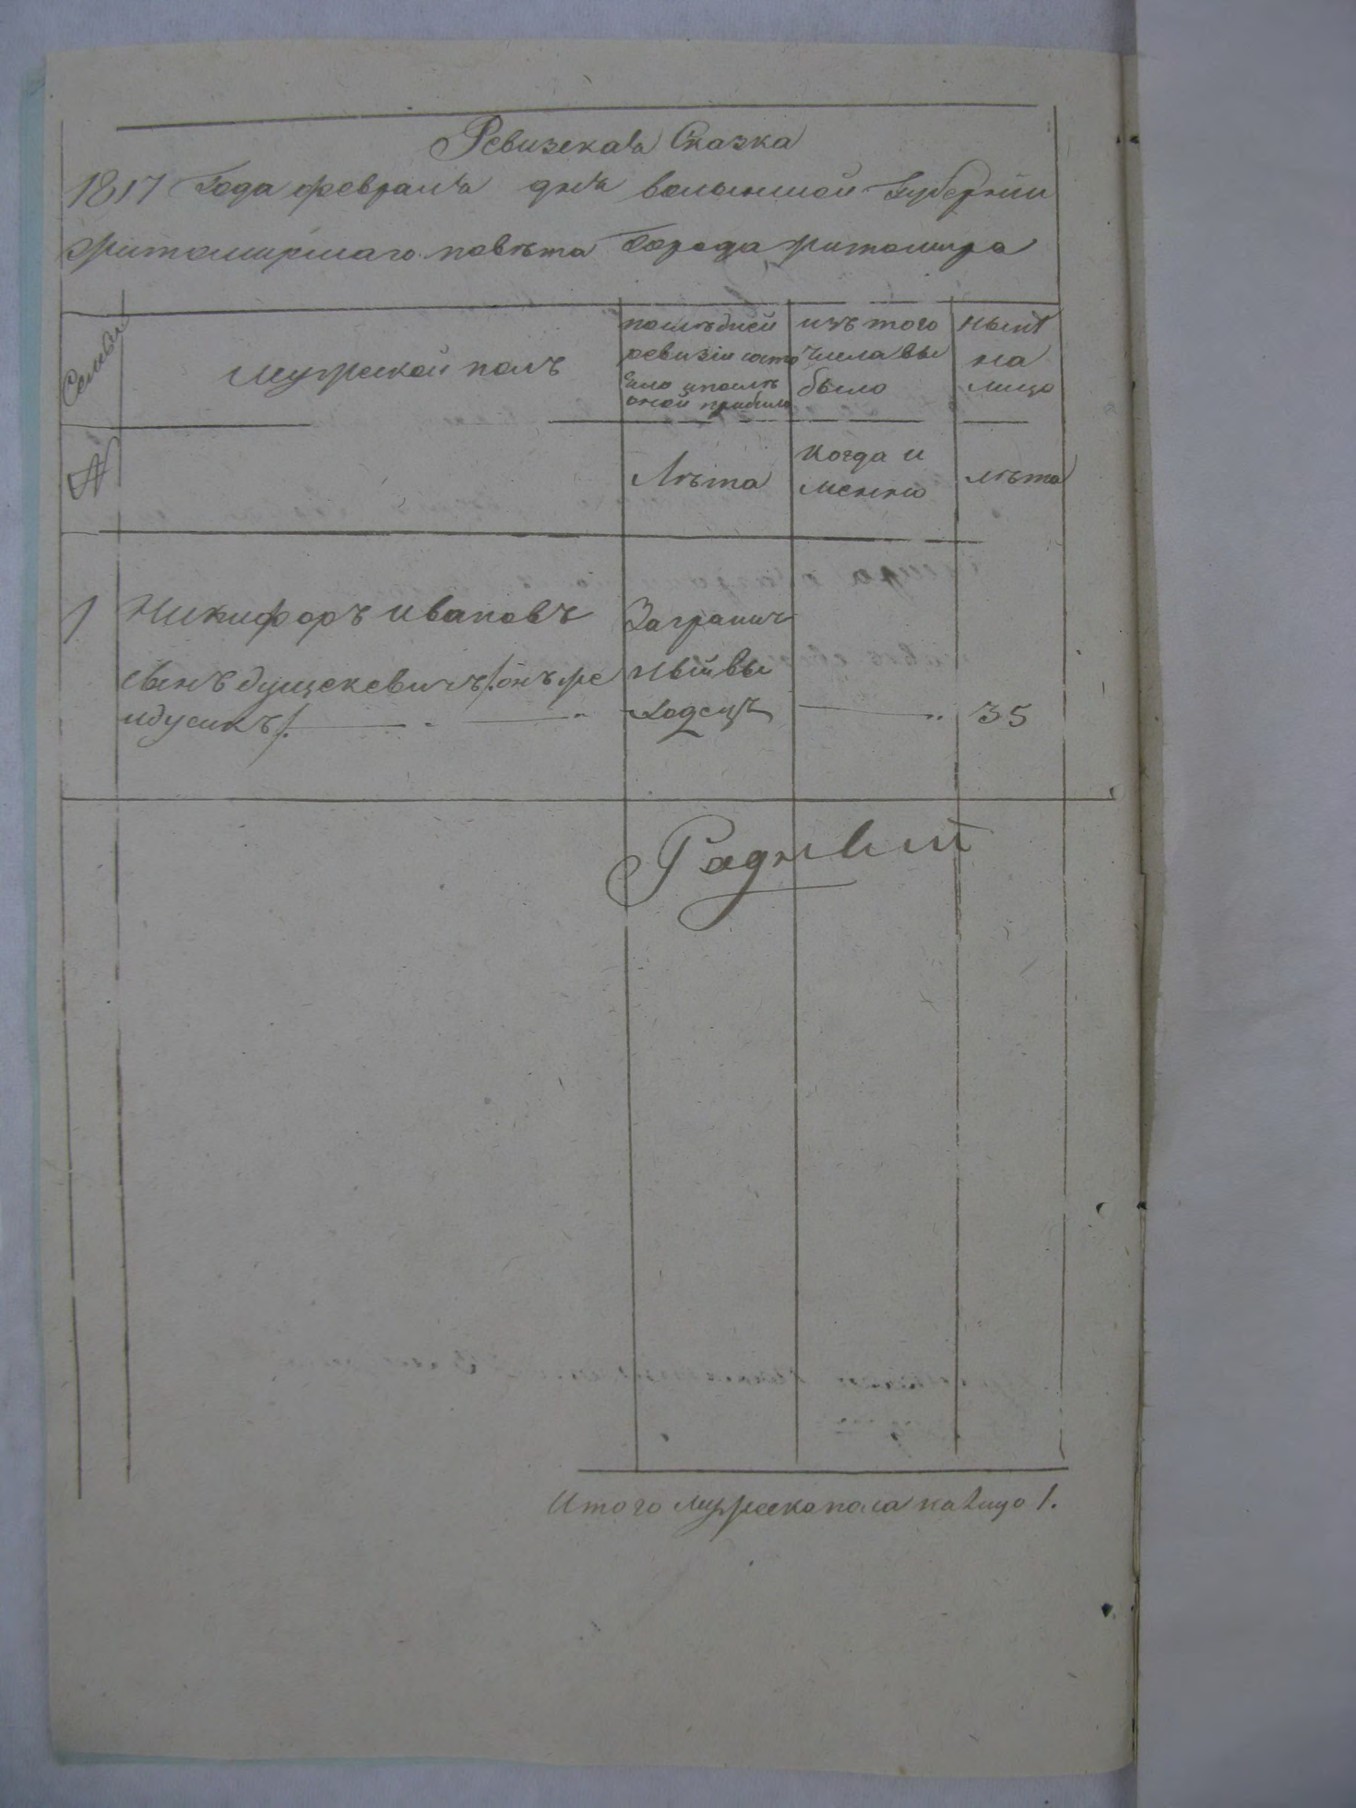 Ревизская Сказка
1817 Года февраля дня волынской Губернии
житомирскаго повѣта Города житомира
Семьи
мужеской полъ
последней
ревизіи состо
яло и послѣ
оной прибыло
изъ того
числа вы
было
нынѣ
на
лицо
№
Лѣта
когда и
менно
лѣта
1
Никифоръ ивановъ
сынъ дущекевичъ /: онъ же
идусикъ /:
Заграни
ный вы
ходецъ
35
Итого мужеско пола на лицо 1.